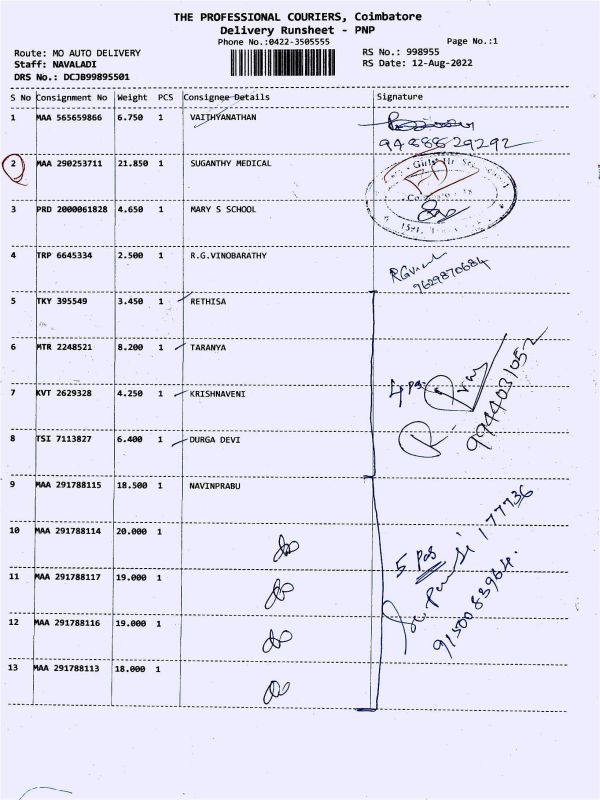 THE PROFESSIONAL COURIERS, Coimbatore
Delivery Runsheet - PNP
Phone No.:0422-3505555
Page No.:1
Route: MO AUTO DELIVERY
RS No.: 998955
Staff: NAVALADI
RS Date: 12-Aug-2022
DRS No.: DCJB99895501
S No Consignment No Weight PCS Consignee Details Signature
1 MAA 565659866 6.750 1 VAITHYANATHAN
9488829292
2 MAA 290253711 21.850 1 SUGANTHY MEDICAL
Girls Hr
3 PRD 2000061828 4.650 1 MARY S SCHOOL
4 TRP 6645334 2.500 1 R.G.VINOBARATHY
9629870684
5 TKY 395549 3.450 1 RETHISA
6 MTR 2248521 8.200 1 TARANYA
7 KVT 2629328 4.250 1 KRISHNAVENI
4 Pcs
9944031052
8 TSI 7113827 6.400 1 DURGA DEVI
9 MAA 291788115 18.500 1 NAVINPRABU
10 MAA 291788114 20.000 1
177736
5 Pcs
11 MAA 291788117 19.000 1
12 MAA 291788116 19.000 1
9150083964
13 MAA 291788113 18.000 1